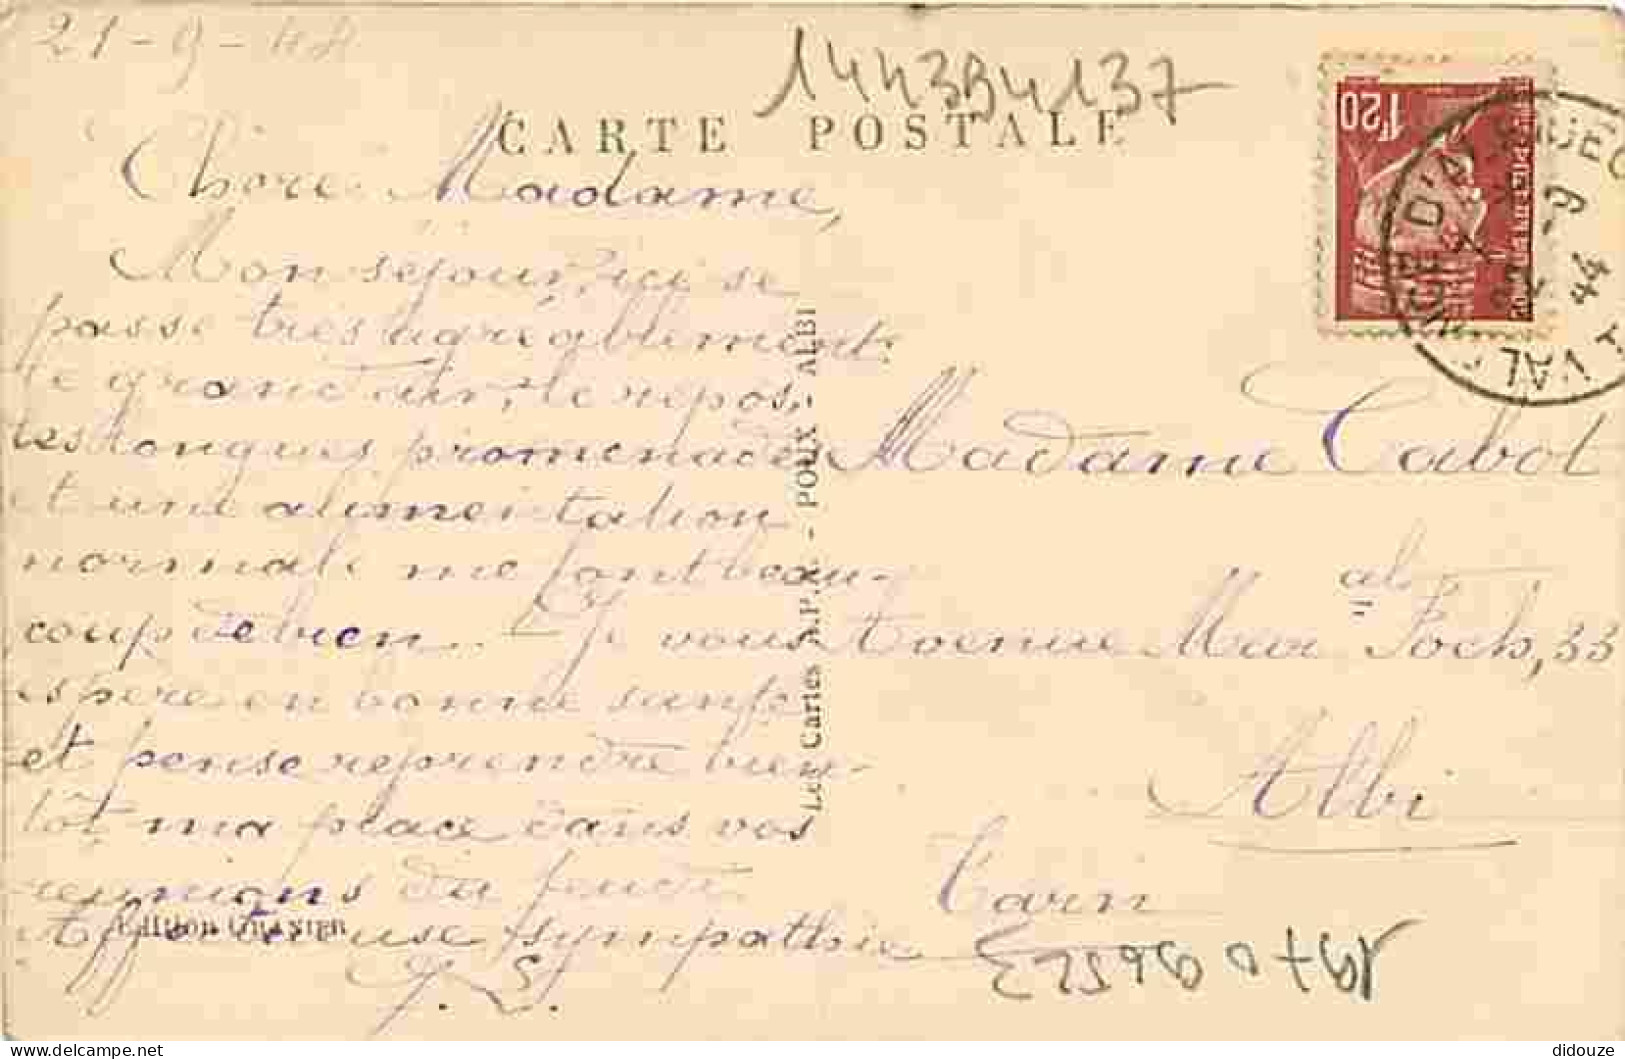 21-9-48
144394137
CARTE POSTALE
Chère Madame,
Mon séjour, ici se
passe très agréablement.
Le grand air, le repos,
les longues promenades
et une alimentation
normale me font beau-
coup de bien. Je vous
espère en bonne santé
et pense reprendre bien-
tôt ma place dans vos
réunions du jeudi.
Affectueuse sympathie
J. S.
Edition GRANIER
Les Cartes A.P.A. - POUX ALBI
1F20
2 -9
44
Madame Cabot
Avenue Mar al Foch, 33
Albi
Tarn
197 0 96523
delcampe.net
didouze